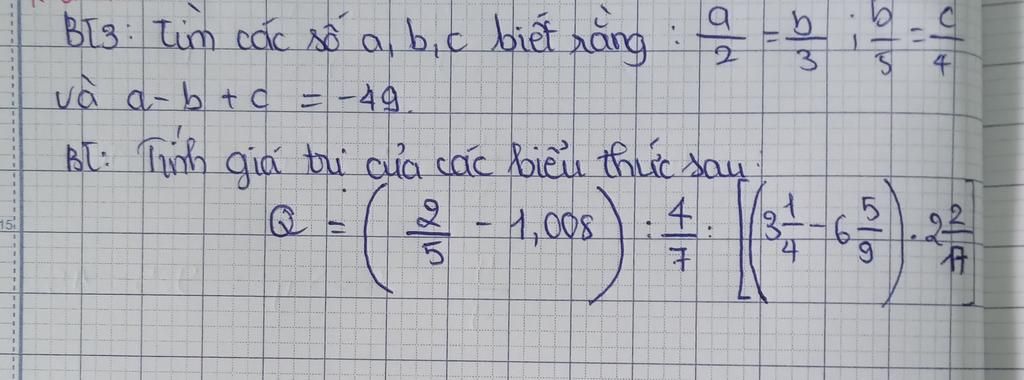 BT3: Tìm các số a, b, c biết rằng : a/2 = b/3 ; b/5 = c/4
và a - b + c = -49.
BT: Tính giá trị của các biểu thức sau:
Q = ( 2/5 - 1,008 ) : 4/7 : [ ( 3 1/4 - 6 5/9 ) . 2 2/17 ]
15